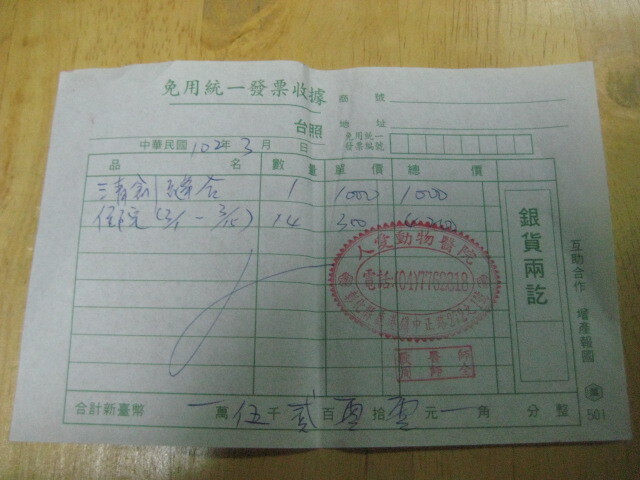 免用統一發票收據
商號
台照
地址
免用統一發票編號
中華民國 102年 3月 日
品名 數量 單價 總價
清創 縫合 1 1000 1000
住院 14 300 4200
銀貨兩訖
互助合作 增產報國
人愛動物醫院
電話:(04)7762818
合計新臺幣 萬 伍 千 貳 百 零 拾 零 元 角 分 整
萬 501